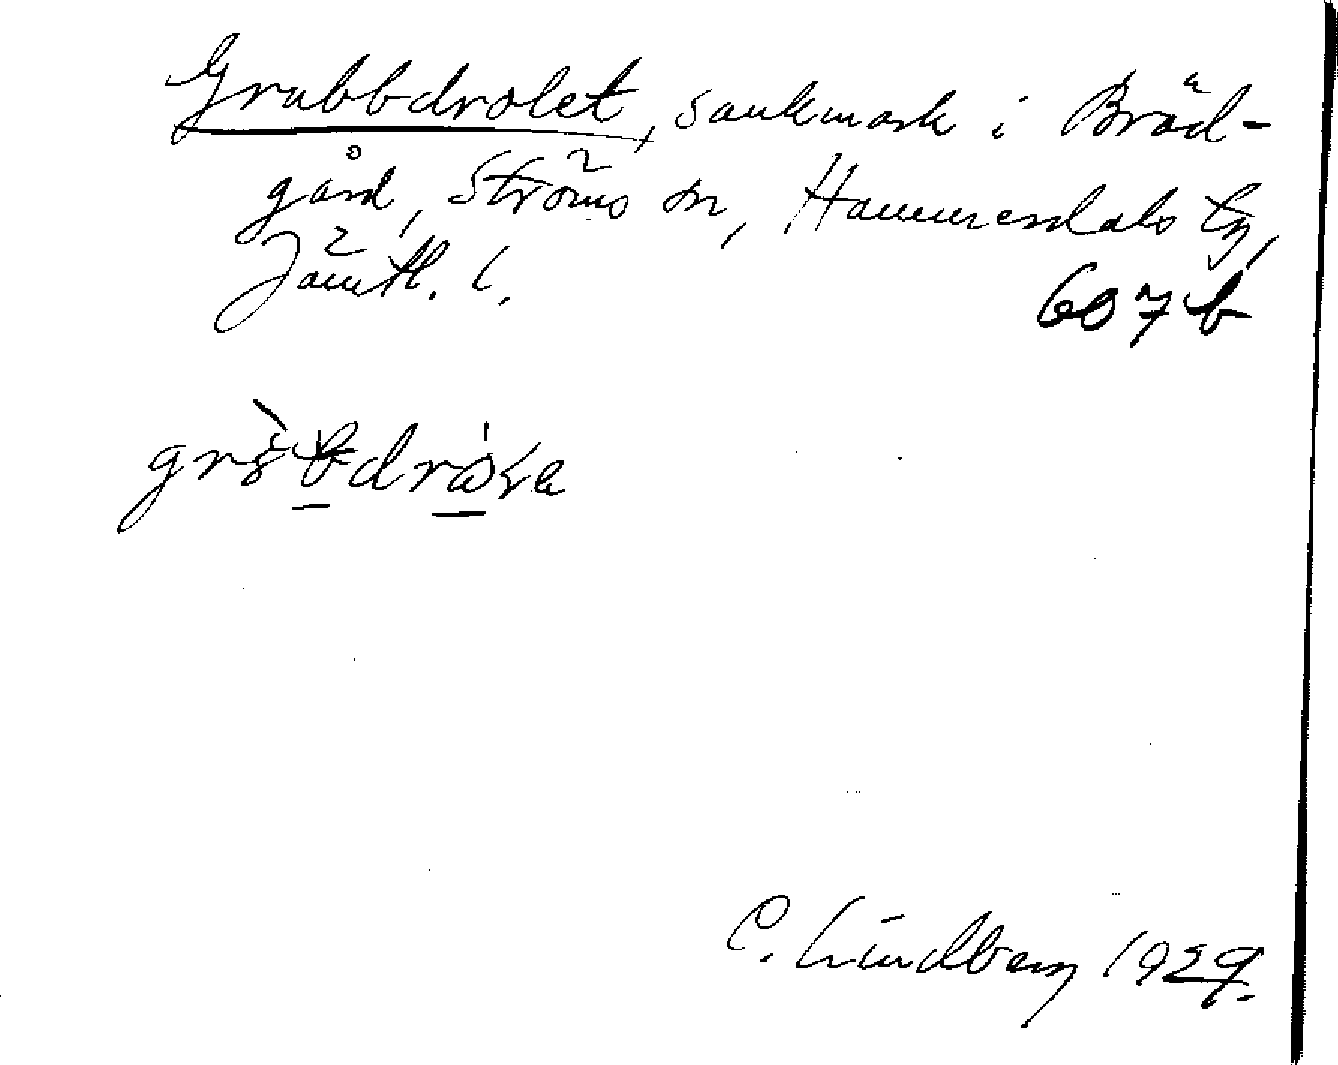 Grubbdrolet, sankmark i Bräd-
gård, Ströms sn, Hammerdals tg,
Jämtl. l.
607 b
C. Lindberg 1929.